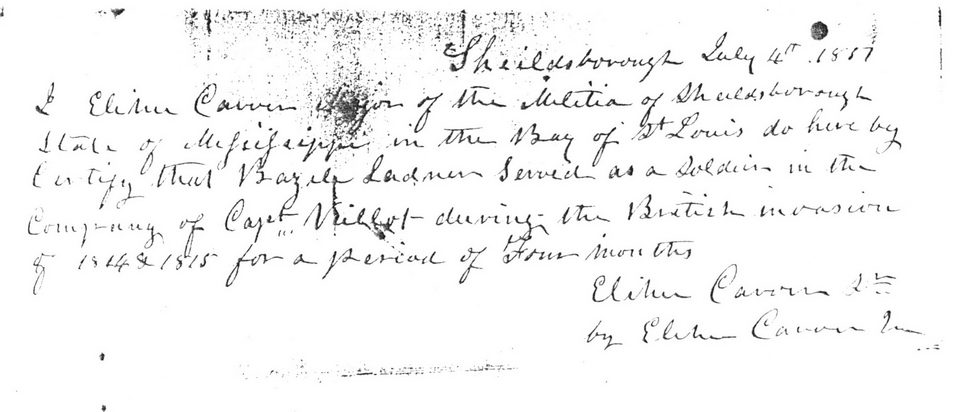 Sheildsborough July 4th 1851
I Elihu Carver Major of the Militia of Sheildsborough
State of Mississippi in the Bay of St Louis do here by
Certify that Bazile Ladner Served as a Soldier in the
Company of Capt Villot during the British invasion
of 1814 & 1815 for a period of Four months
Elihu Carver Sr
by Elihu Carver Jn